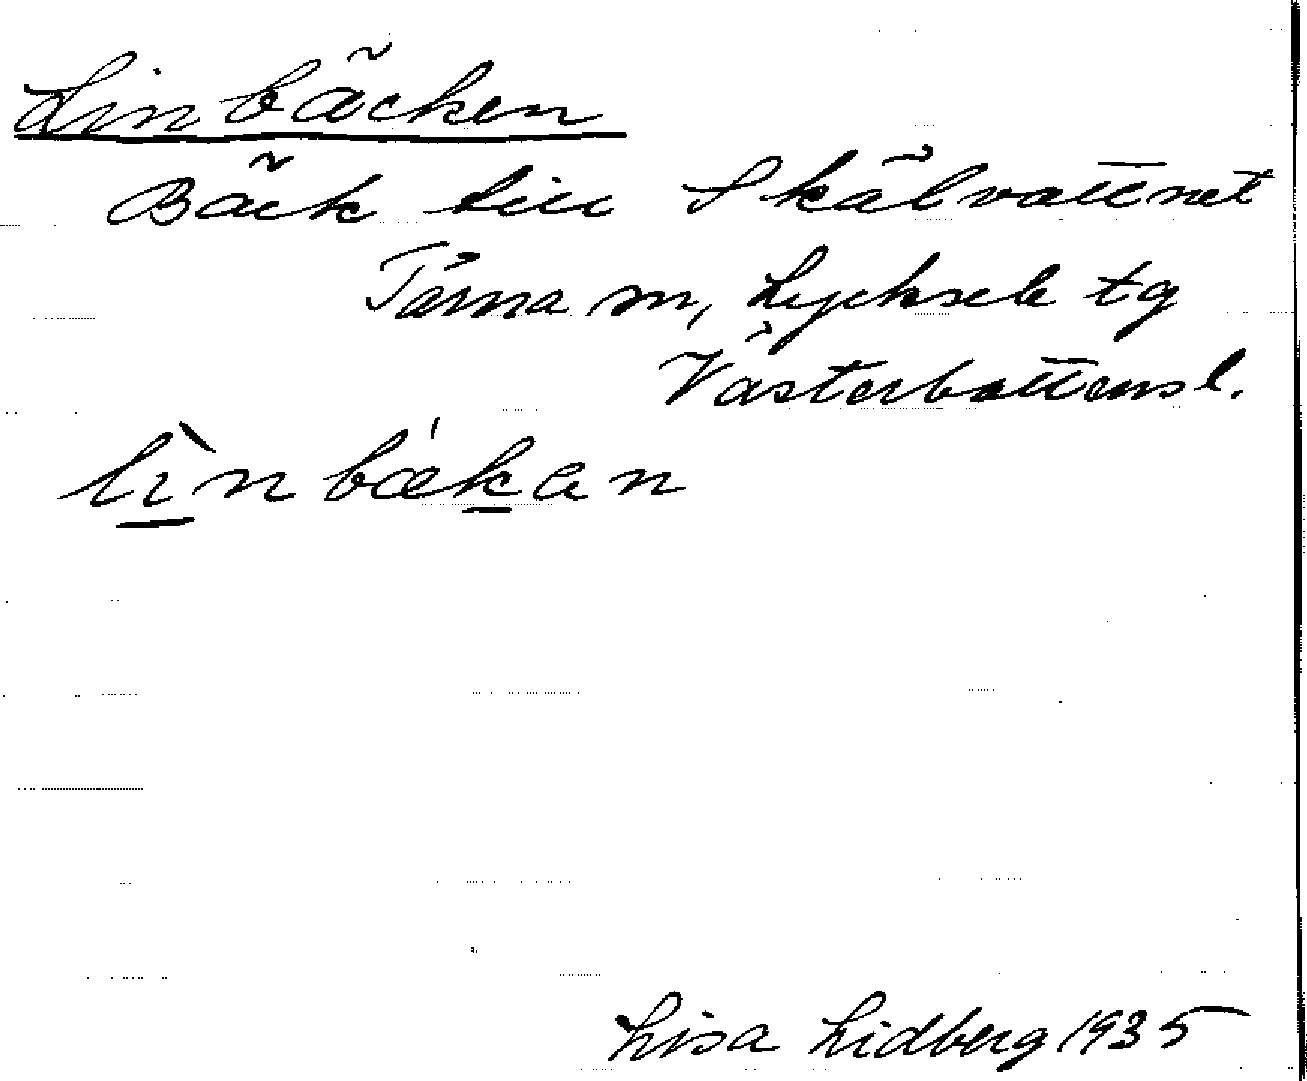 Linbäcken
Bäck till Skålvattnet
Tärna sn, Lycksele tg
Västerbottensl.
lìnbǽkan
Lisa Lidberg 1935